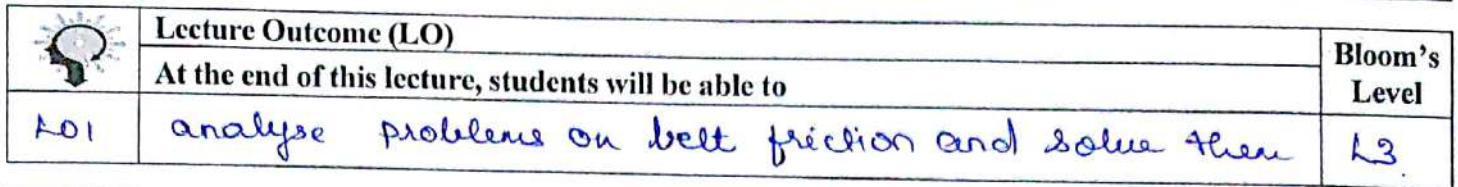 Lecture Outcome (LO)
At the end of this lecture, students will be able to
Bloom's
Level
LO1 analyse problems on belt friction and solve them L3